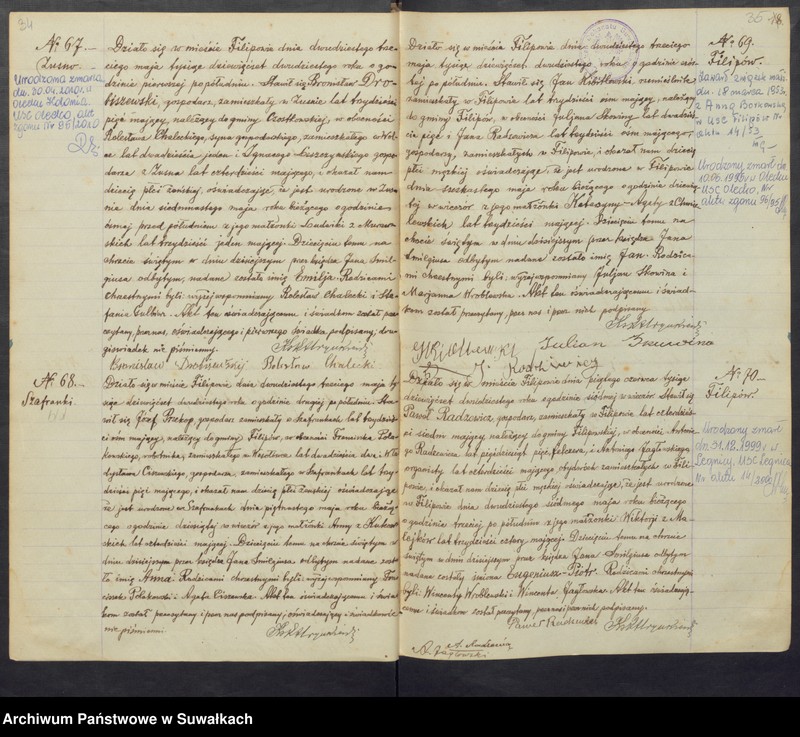 34
№ 67.
Zusno
Urodzona zmarła
dn. 30.04.2010 r. w
Olecku Kolonia
USC Olecko, akt
zgonu Nr 86/2010
Działo się w mieście Filipowie dnia dwudziestego trze-
ciego maja tysiąc dziewięćset dwudziestego roku o go-
dzinie pierwszej po południu. Stawił się Bronisław Dro-
biszewski, gospodarz, zamieszkały w Zusnie lat trzydzieści
pięć mający, należący do gminy Czostkowskiej, w obecności
Bolesława Chaleckiego, syna gospodarskiego, zamieszkałego w
lat dwadzieścia jeden i Ignacego gospo-
darza z Zusna lat czterdzieści mającego, i okazał nam
dziecię płci żeńskiej, oświadczając, że jest urodzone w Zus-
nie dnia siedemnastego maja roku bieżącego o godzinie
ósmej przed południem z jego małżonki Ludwiki z
skich lat trzydzieści jeden mającej. Dziecięciu temu na
chrzcie świętym w dniu dzisiejszym przez księdza Jana Śmil-
giusa odbytym, nadane zostało imię Emilja. Rodzicami
chrzestnymi byli: wyżej wspomniany Bolesław Chalecki i Ste-
fania Akt ten oświadczającemu i świadkom został prze-
czytany, przez nas, oświadczającego i pierwszego świadka podpisany, dru-
gi świadek nie piśmienny.
Bronisław Drobiszewski Bolesław Chalecki
№ 68.
Szafranki
Działo się w mieście Filipowie dnia dwudziestego trzeciego maja ty-
siąc dziewięćset dwudziestego roku o godzinie drugiej po południu. Sta-
wił się Józef Przekop, gospodarz zamieszkały w Szafrankach lat trzydzieś-
ci osm mający, należący do gminy Filipów, w obecności Franciszka Pola-
kowskiego, robotnika, zamieszkałego w lat dwadzieścia dwa i Wła-
dysława Ciszewskiego, gospodarza, zamieszkałego w Szafrankach lat trzy-
dzieści pięć mającego, i okazał nam dziecię płci żeńskiej oświadczając,
że jest urodzone w Szafrankach dnia piętnastego maja roku bieżą-
cego o godzinie dziesiątej w wieczór z jego małżonki Anny z
skich lat czterdzieści mającej. Dziecięciu temu na chrzcie świętym w
dniu dzisiejszym przez księdza Jana Śmilgiusa odbytym nadane zosta-
ło imię Anna. Rodzicami chrzestnymi byli: wyżej wspomniany Fran-
ciszek Polakowski i Agata Ciszewska. Akt ten oświadczającemu i świad-
kom został przeczytany i przez nas podpisany, oświadczający i świadkowie
nie piśmienni.
35
Działo się w mieście Filipowie dnia dwudziestego trzeciego
maja tysiąc dziewięćset dwudziestego roku o godzinie szós-
tej po południu. Stawił się Jan rzemieślnik
zamieszkały w Filipowie lat trzydzieści osm mający, należący
do gminy Filipów, w obecności Juljana Skowiny lat dwadzieś-
cia pięć i Jana Radzewicza lat trzydzieści osm mającego,
gospodarzy, zamieszkałych w Filipowie, i okazał nam dziecię
płci męskiej oświadczając, że jest urodzone w Filipowie
dnia szesnastego maja roku bieżącego o godzinie dziewią-
tej w wieczór z jego małżonki Katarzyny-Agaty z Chmie-
lewskich lat trzydzieści mającej. Dziecięciu temu na
chrzcie świętym w dniu dzisiejszym przez księdza Jana
Śmilgiusa odbytym nadane zostało imię Jan. Rodzica-
mi chrzestnymi byli: wyżej wspomniany Juljan Skowina i
Marjanna Wróblewska. Akt ten oświadczającemu i świad-
kom został przeczytany, przez nas i przez nich podpisany.
Julian
№ 69.
Filipów.
Zawarł związek małż.
dn. 18 marca 1953 r.
z Anną Borkowską
w USC Filipów Nr
aktu 14/53
Urodzony zmarł dn.
10.06.1995 w Olecku
USC Olecko, Nr
aktu zgonu 96/95
№ 70.
Filipów.
Urodzony zmarł
dn. 31.12.1999 r. w
Legnicy, USC Legnica
Nr aktu 14/2000
Działo się w mieście Filipowie dnia piątego czerwca tysiąc
dziewięćset dwudziestego roku o godzinie siódmej w wieczór. Stawił się
Paweł Radzewicz, gospodarz, zamieszkały w Filipowie, lat czterdzieś-
ci siedm mający należący do gminy Filipowskiej, w obecności Antonie-
go Radzewicza lat pięćdziesiąt pięć, felczera, i Antoniego Zagłowskiego,
organisty lat czterdzieści mającego, obydwóch zamieszkałych w Fili-
powie, i okazał nam dziecię płci męskiej oświadczając, że jest urodzone
w Filipowie dnia dwudziestego siódmego maja roku bieżącego
o godzinie trzeciej po południu z jego małżonki Wiktorji z Ma-
tejków lat trzydzieści cztery mającej. Dziecięciu temu na chrzcie
świętym w dniu dzisiejszym przez księdza Jana Śmilgiusa odbytym
nadane zostały imiona Eugeniusz-Piotr. Rodzicami chrzestnymi
byli: Wincenty Wróblewski i Wincenta Zagłowska. Akt ten oświadczają-
cemu i świadkom został przeczytany, przez nas i przez nich podpisany.
Paweł Radzewicz
A. Radzewicz
A. Zagłowski
Archiwum Państwowe w Suwałkach